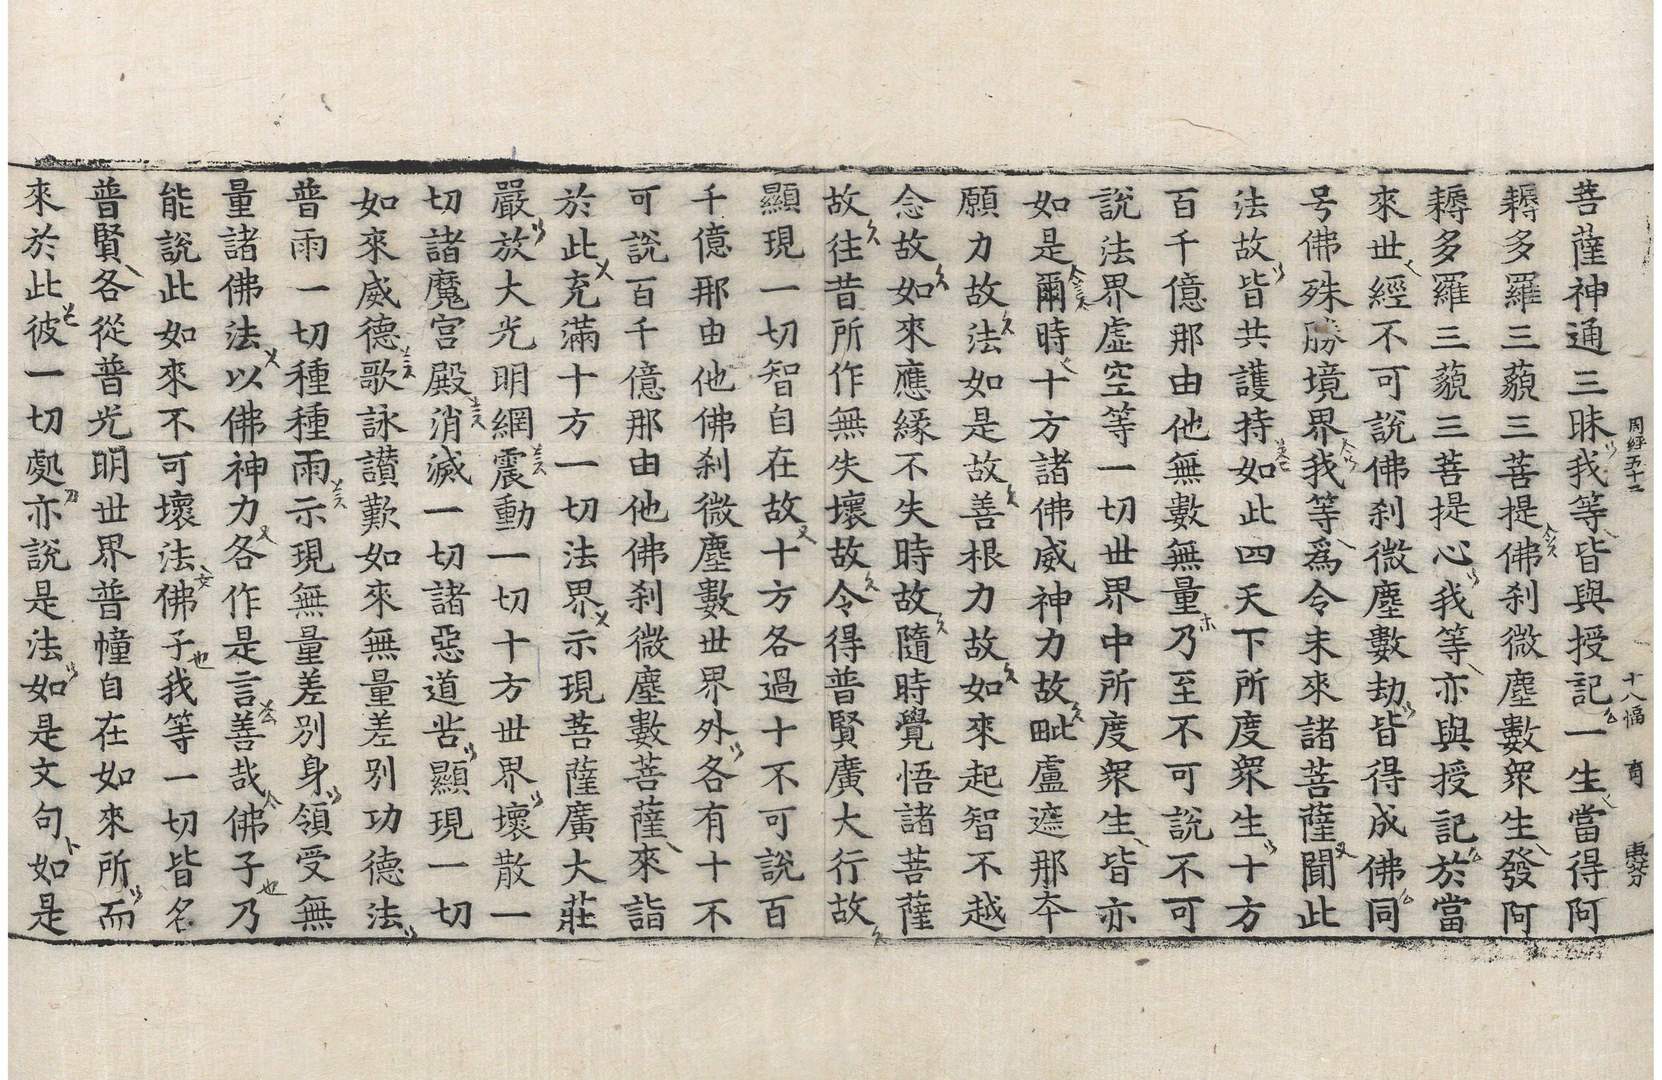 周經五十二 十八幅 育 惠芬
菩薩神通三昧我等皆與授記一生當得阿
耨多羅三藐三菩提佛刹微塵數衆生發阿
耨多羅三藐三菩提心我等亦與授記於當
來世經不可說佛刹微塵數劫皆得成佛同
号佛殊勝境界我等爲令未來諸菩薩聞此
法故皆共護持如此四天下所度衆生十方
百千億那由他無數無量乃至不可說不可
說法界虛空等一切世界中所度衆生皆亦
如是爾時十方諸佛威神力故毗盧遮那本
願力故法如是故善根力故如來起智不越
念故如來應緣不失時故隨時覺悟諸菩薩
故往昔所作無失壞故令得普賢廣大行故
顯現一切智自在故十方各過十不可說百
千億那由他佛刹微塵數世界外各有十不
可說百千億那由他佛刹微塵數菩薩來詣
於此充滿十方一切法界示現菩薩廣大莊
嚴放大光明網震動一切十方世界壞散一
切諸魔宮殿消滅一切諸惡道苦顯現一切
如來威德歌詠讃歎如來無量差別功德法
普雨一切種種雨示現無量差別身領受無
量諸佛法以佛神力各作是言善哉佛子乃
能說此如來不可壞法佛子我等一切皆名
普賢各從普光明世界普幢自在如來所而
來於此彼一切處亦說是法如是文句如是